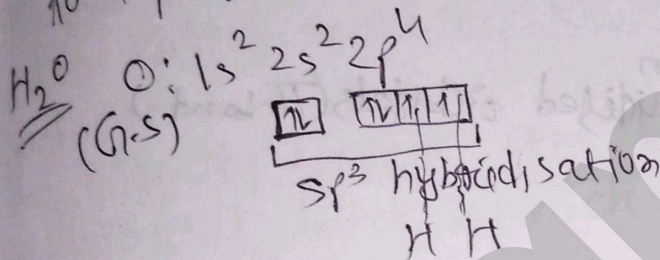 H₂O O: 1s² 2s² 2p⁴
(G.S) 1↓ 1↓ 1 1
sp³ hybridisation
H H